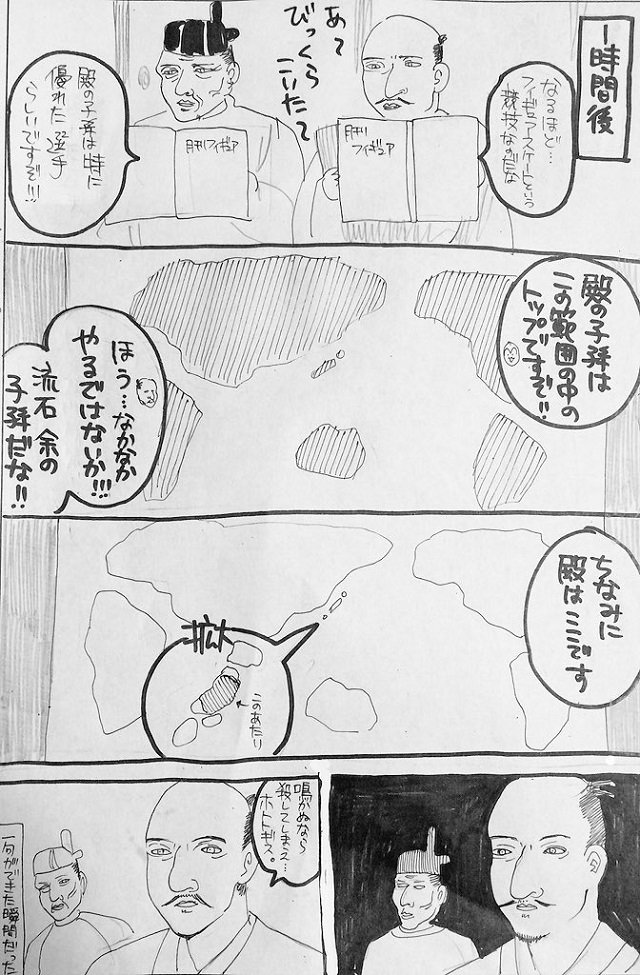 一時間後
なるほど…
フィギュアスケートという
競技なのだな
あて
びっくら
こいたて
月刊フィギュア
月刊フィギュア
殿の子孫は特に
優れた選手
らしいですぞ!!!
殿の子孫は
この範囲の中の
トップですぞ!!
ほう…なかなか
やるではないか!!!
流石 余の
子孫だな!!
ちなみに
殿はここです
拡大
このあたり
鳴かぬなら
殺してしまえ…
ホトトギス。
一句ができた瞬間だった